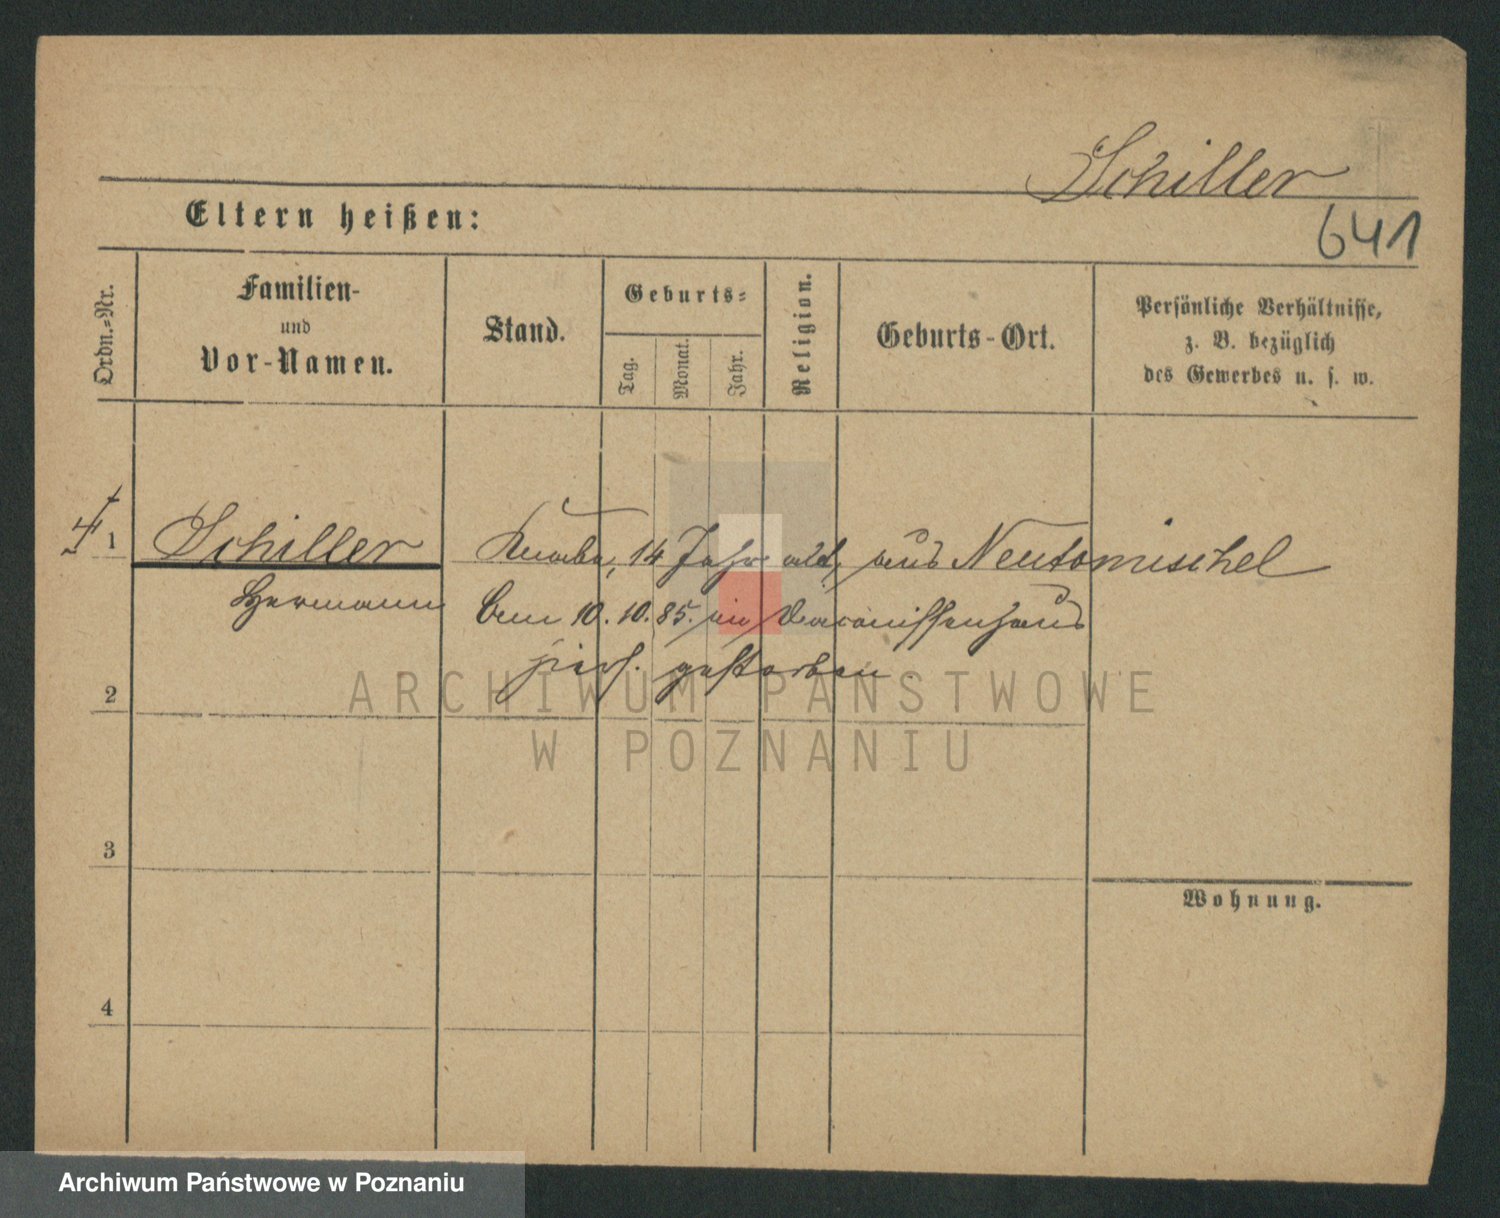 Schiller
641
Eltern heißen:
Ordn.=Nr.
Familien-
und
Vor-Namen.
Stand.
Geburts=
Tag.
Monat.
Jahr.
Religion.
Geburts-Ort.
Persönliche Verhältnisse,
z. B. bezüglich
des Gewerbes u. s. w.
1
Schiller
Hermann
Knabe, 14 Jahr alt, aus Neutomischel
am 10. 10. 85. im Diaconissenhaus
hiers. gestorben.
2
3
4
Wohnung.
ARCHIWUM PAŃSTWOWE
W POZNANIU
Archiwum Państwowe w Poznaniu